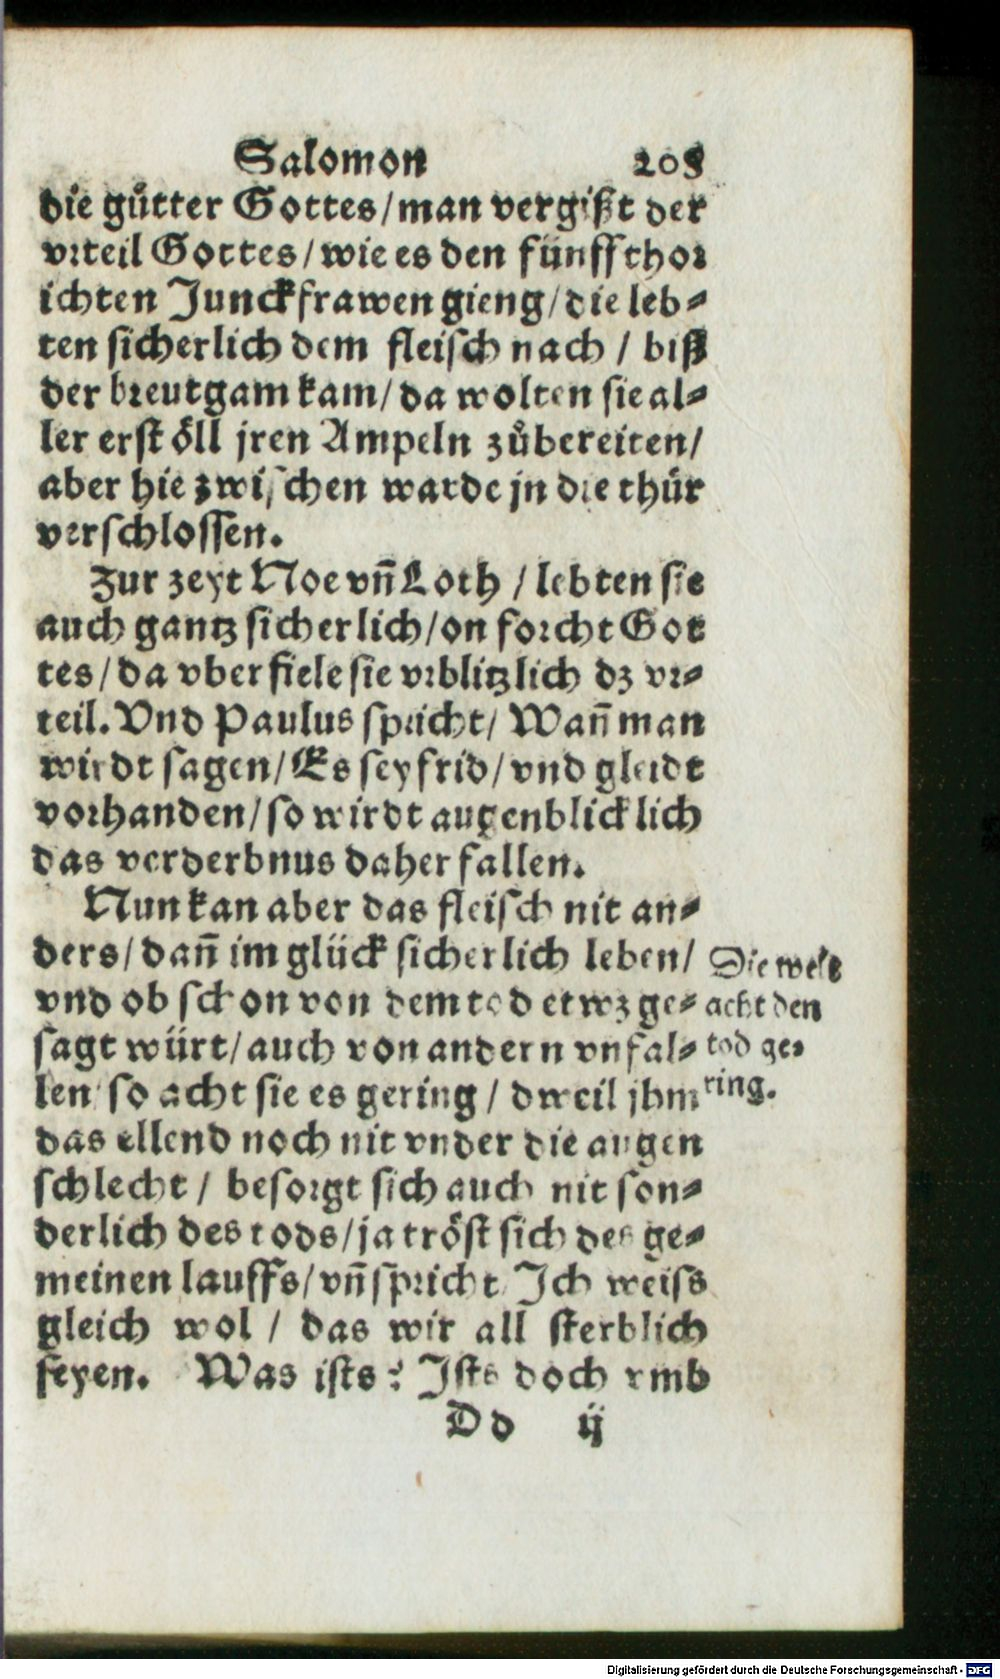 Salomon 208
die guͤtter Gottes/man vergißt der
vrteil Gottes/wie es den fünff thor
ichten Junckfrawen gieng/die leb⸗
ten sicherlich dem fleisch nach / biß
der breutgam kam/da wolten sie al⸗
ler erst oͤll jren Ampeln zuͦbereiten/
aber hie zwischen warde jn die thür
verschlossen.
Zur zeyt Noe vñ Loth / lebten sie
auch gantz sicherlich/on forcht Got
tes/da vberfiele sie vrblitzlich dz vr⸗
teil. Vnd Paulus spricht/ Wañ man
wirdt sagen/Es sey frid/vnd gleidt
vorhanden/so wirdt augenblicklich
das verderbnus daher fallen.
Nun kan aber das fleisch nit an⸗
ders/dañ im glück sicherlich leben/
vnd ob schon von dem tod etwz ge⸗
sagt würt/auch von andern vnfal⸗
len/so acht sie es gering / dweil jhm
das ellend noch nit vnder die augen
schlecht / besorgt sich auch nit son⸗
derlich des tods/ja tröst sich des ge⸗
meinen lauffs/vñ spricht/ Ich weiss
gleich wol / das wir all sterblich
seyen. Was ists? Ists doch vmb
Dd ij
Die welt
acht den
tod ge⸗
ring.
Digitalisierung gefördert durch die Deutsche Forschungsgemeinschaft - DFG